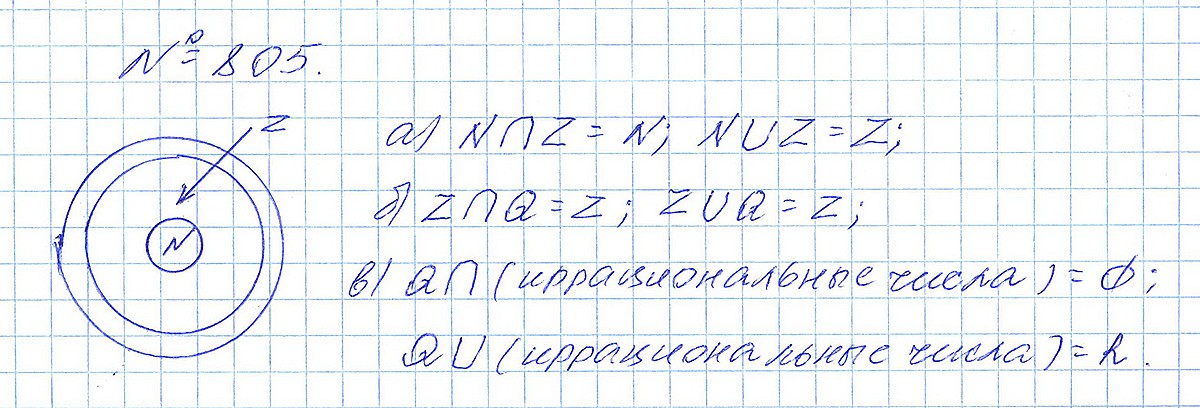 № 805.
Z
N
а) N∩Z = N; N∪Z = Z;
б) Z∩Q = Z; Z∪Q = Z;
в) Q∩(иррациональные числа) = ∅;
Q∪(иррациональные числа) = R.